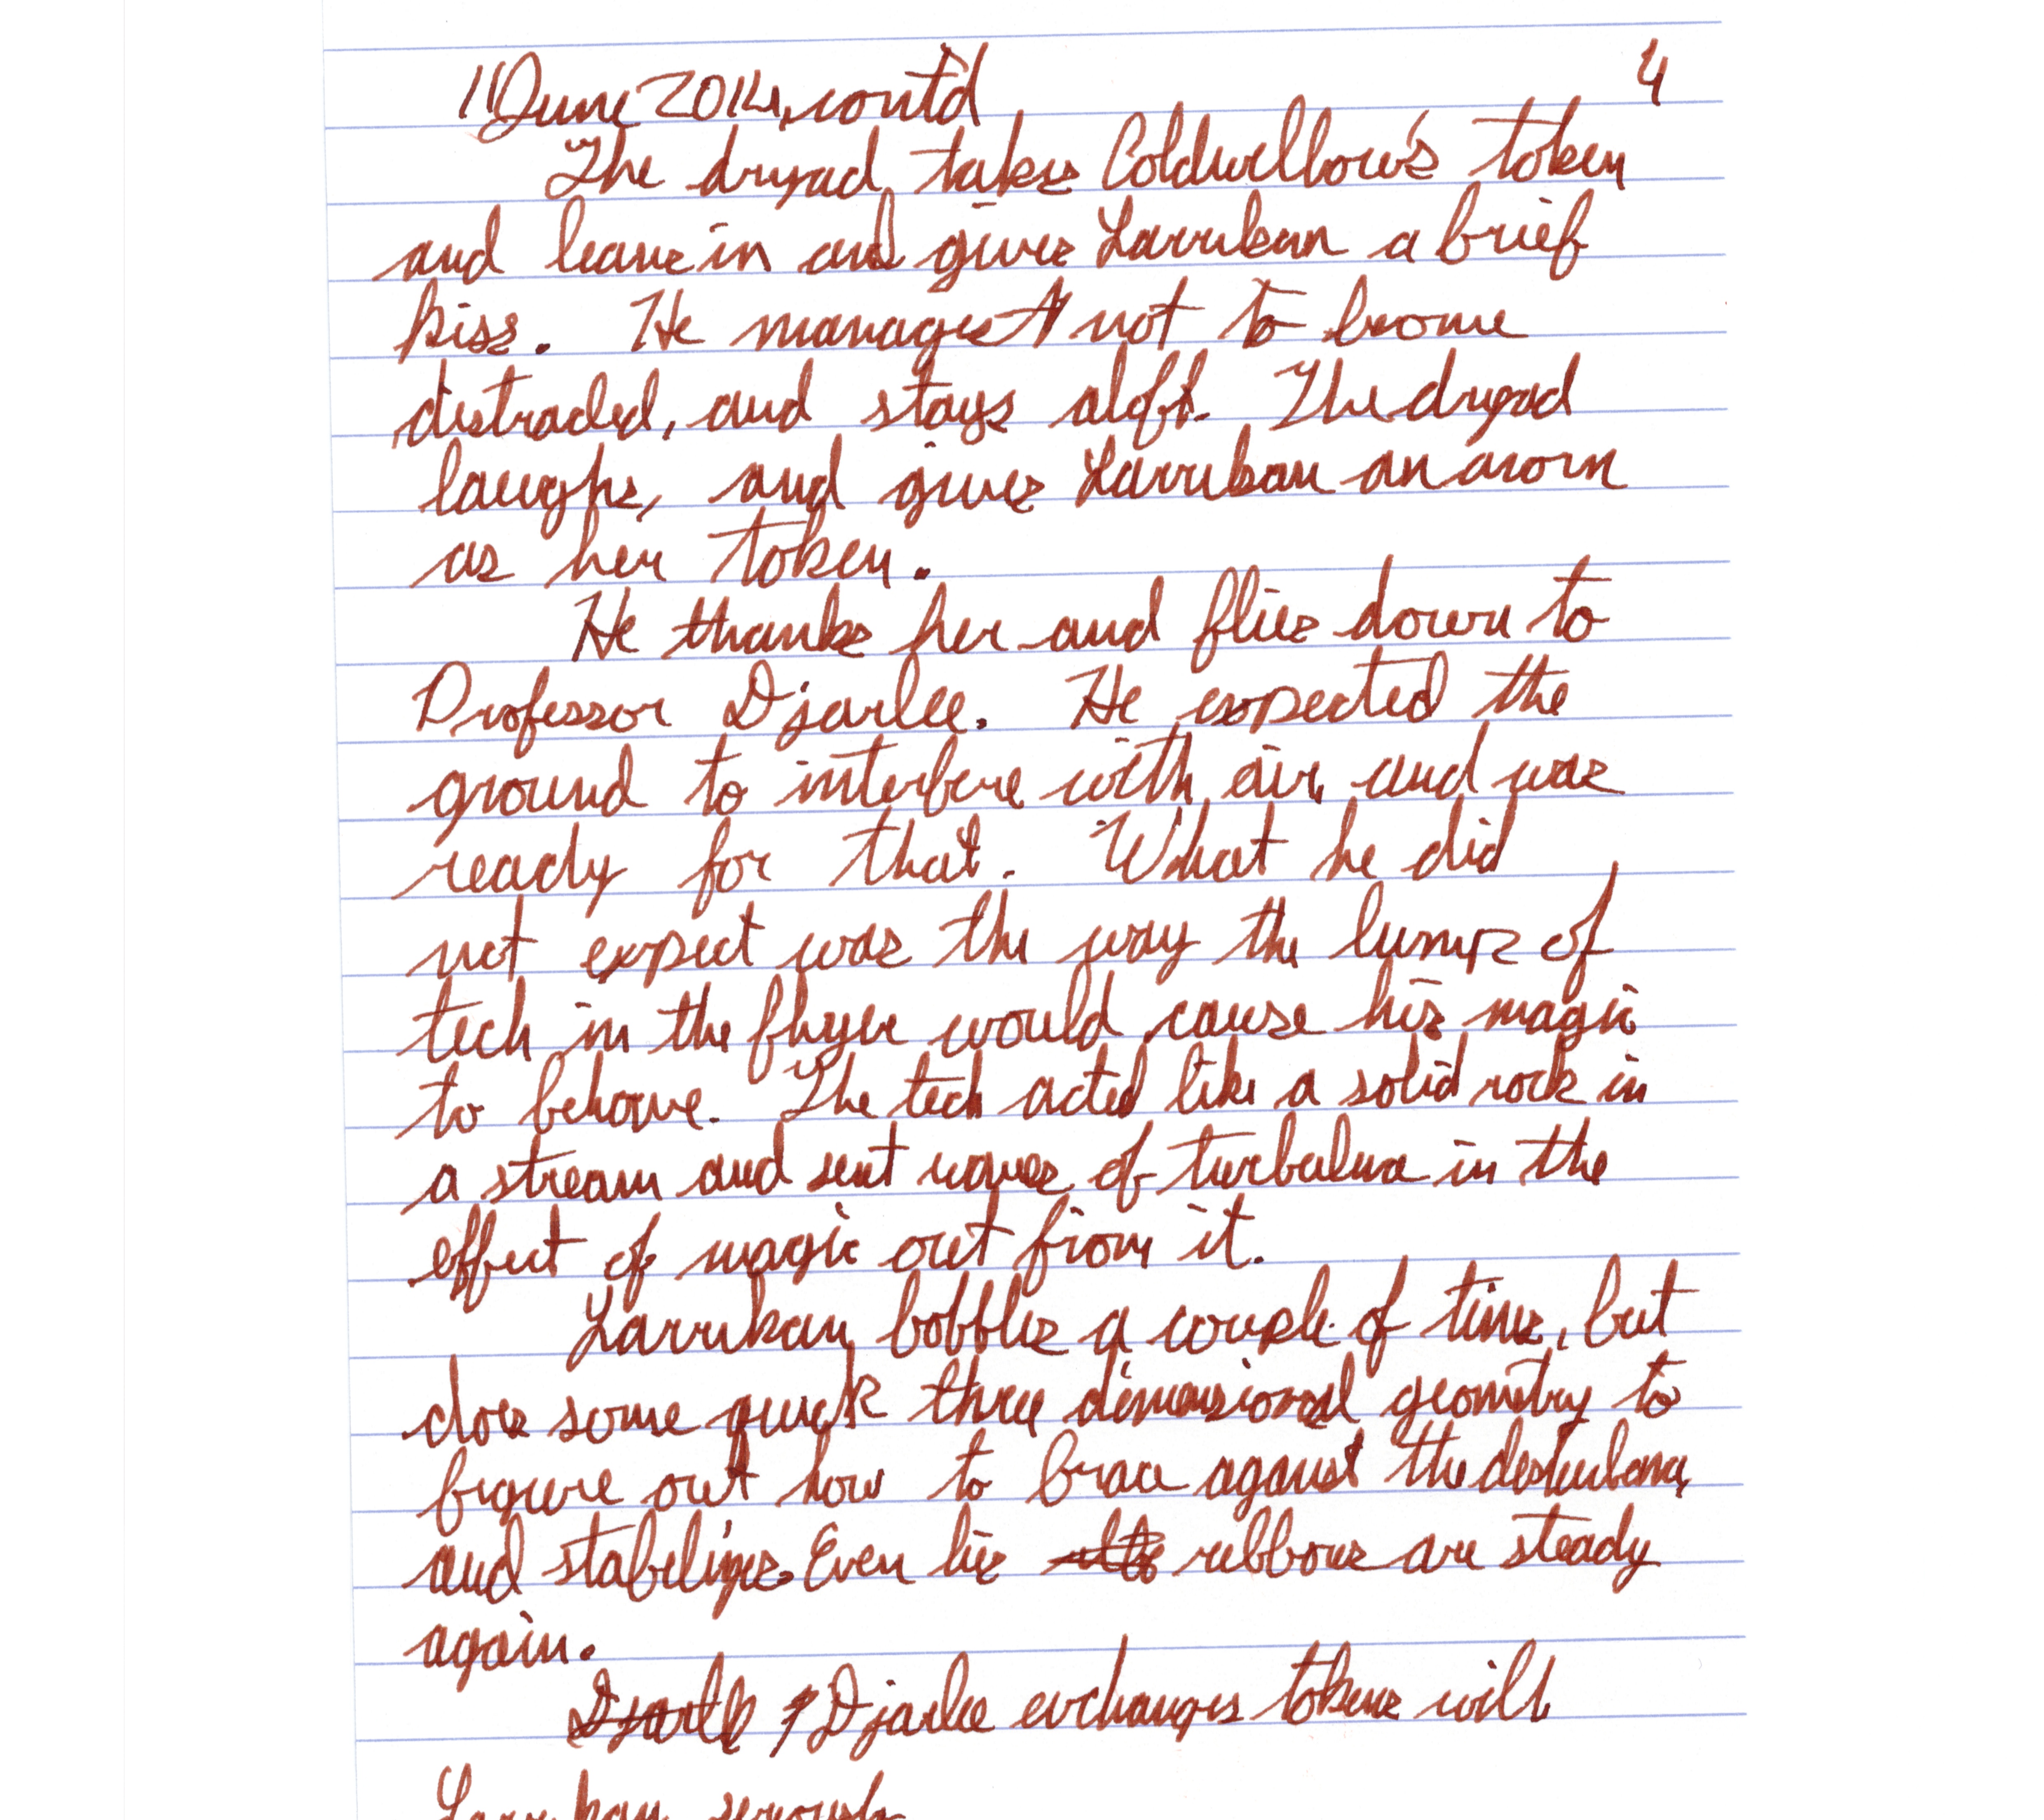 11 June 2014, cont'd 4
The dryad takes Coldwellow's token
and leans in and gives Larrikan a brief
kiss. He manages not to become
distracted, and stays aloft. The dryad
laughs, and gives Larrikan an acorn
as her token.
He thanks her and flies down to
Professor Djarlee. He expected the
ground to interfere with air, and was
ready for that. What he did
not expect was the way the lumps of
tech in the flyer would cause his magic
to behave. The tech acted like a solid rock in
a stream and sent waves of turbulence in the
effect of magic out from it.
Larrikan bobbles a couple of times, but
does some quick three dimensional geometry to
figure out how to brace against the disturbance,
and stabilizes. Even his ribbons are steady
again.
Djarlee exchanges tokens with
Larrikan